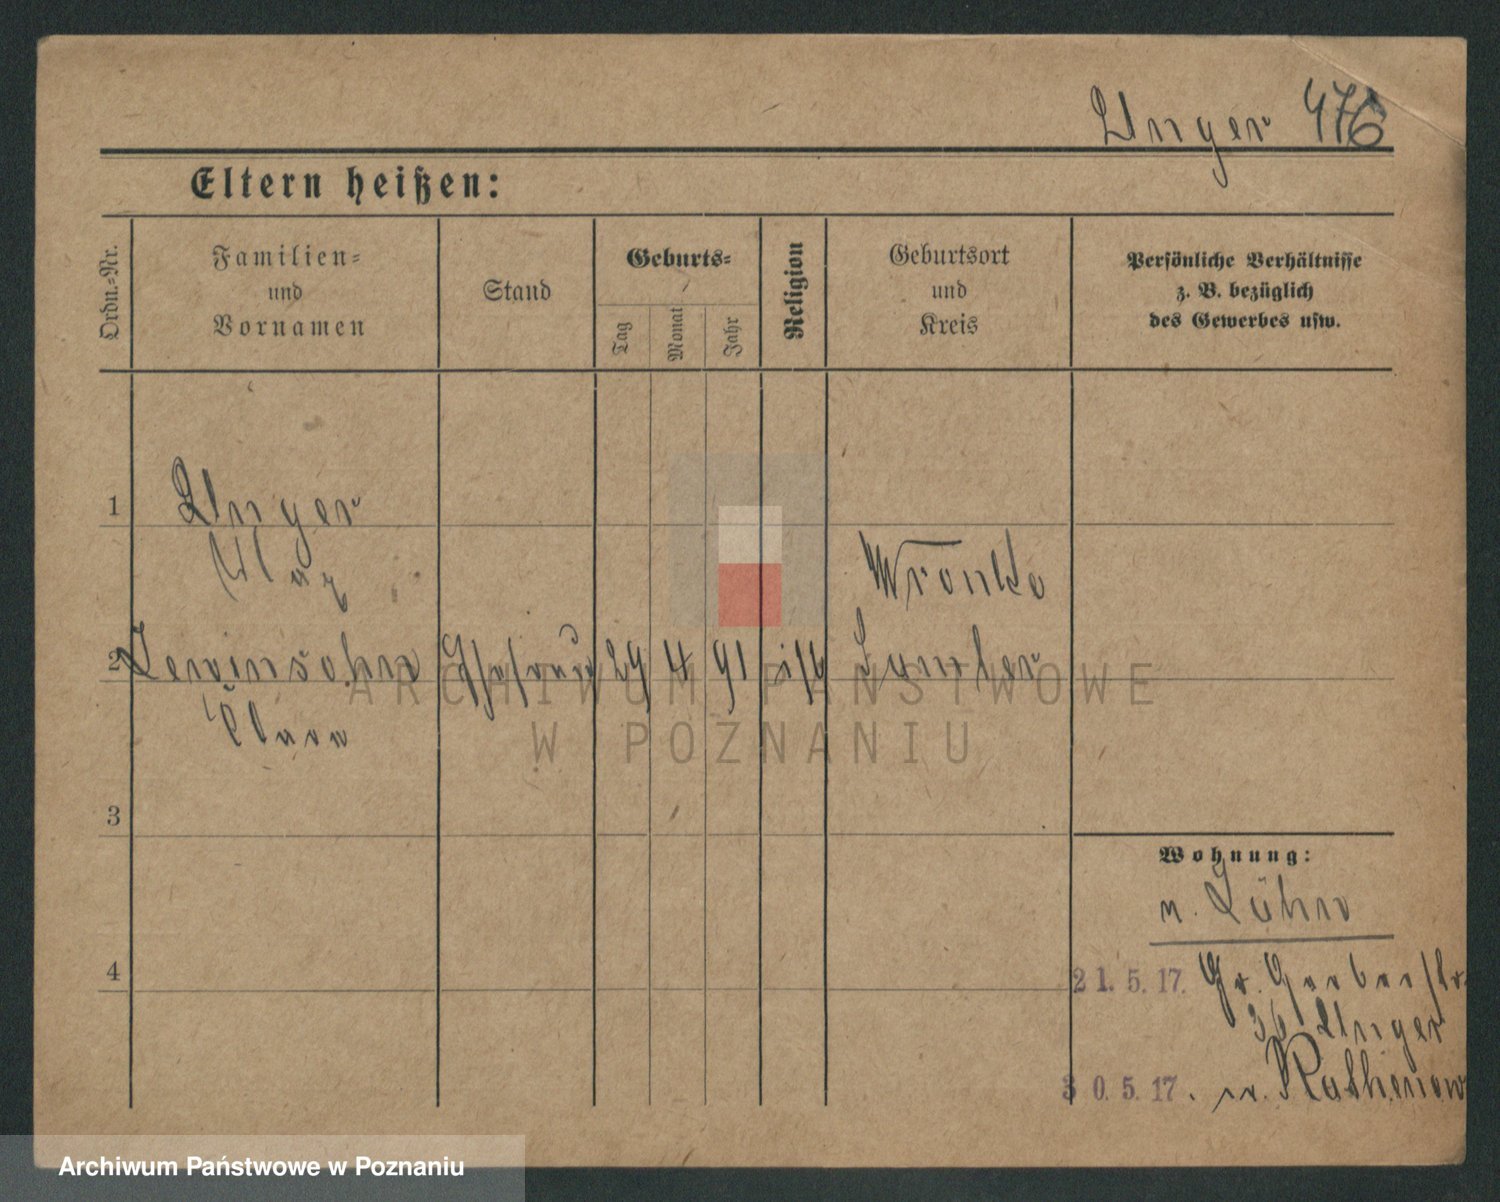 Unger 476
Eltern heißen:
Ordn.-Nr.
Familien-
und
Vornamen
Stand
Geburts-
Tag
Monat
Jahr
Religion
Geburtsort
und
Kreis
Persönliche Verhältnisse
z. B. bezüglich
des Gewerbes usw.
1
Unger
Max
Wronke
2 Lewinsohn Ehefrau 29 4 91 Samter
Clara
3
Wohnung:
n. Lähn
4
21. 5. 17. Gr. Gerberstr.
36 Unger
30. 5. 17. n. Rathenow
ARCHIWUM PAŃSTWOWE
W POZNANIU
Archiwum Państwowe w Poznaniu